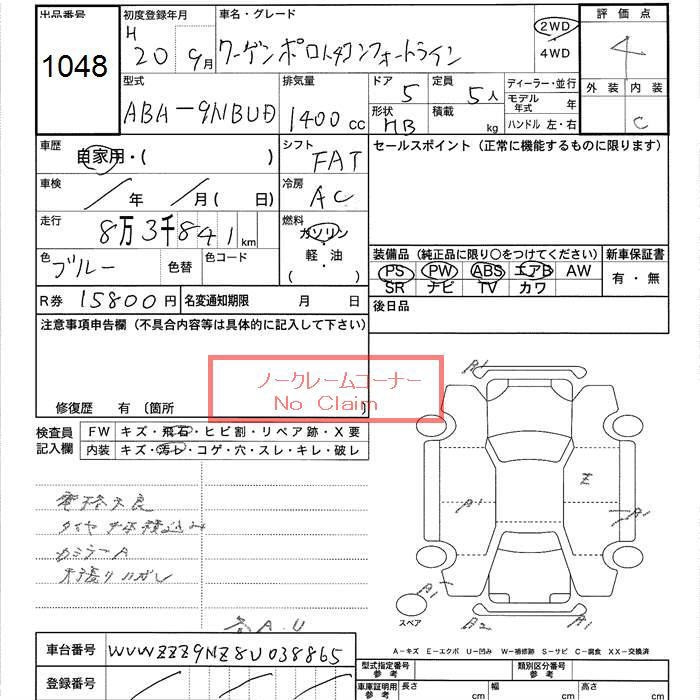 出品番号
1048
初度登録年月
H
20 9月
車名・グレード
ワーゲンポロ1,4コンフォートライン
2WD
4WD
評価点
4
外装 内装
C
型式
ABA-9NBUD
排気量
1400cc
ドア 5
定員 5人
形状 HB
積載 kg
ディーラー・並行
モデル年式 年
ハンドル 左・右
車歴
自家用・( )
シフト
FAT
セールスポイント(正常に機能するものに限ります)
車検
/年 /月( 日)
冷房
AC
走行
8万3千841km
燃料
ガソリン
・
軽・油
( )
色 ブルー
色替
色コード
装備品(純正品に限り○をつけてください)
PS PW ABS エアB AW
SR ナビ TV カワ
新車保証書
有・無
R券 15800円
名変通知期限 月 日
後日品
注意事項申告欄(不具合内容等は具体的に記入して下さい)
ノークレームコーナー
No Claim
修復歴 有(箇所 )
検査員記入欄
FW キズ・飛石・ヒビ割・リペア跡・X要
内装 キズ・汚レ・コゲ・穴・スレ・キレ・破レ
電格不良
タイヤ4本積込み
カミラーA
天張りハガレ
A.U
A1
E
A1
A1
A1
A2
A1
スペア
A-キズ E-エクボ U-凹み W-補修跡 S-サビ C-腐食 XX-交換済
車台番号 WVWZZZ9NZ8U038865
登録番号
型式指定番号
類別区分番号
車庫証明用参考
長さ cm
幅 cm
高さ cm